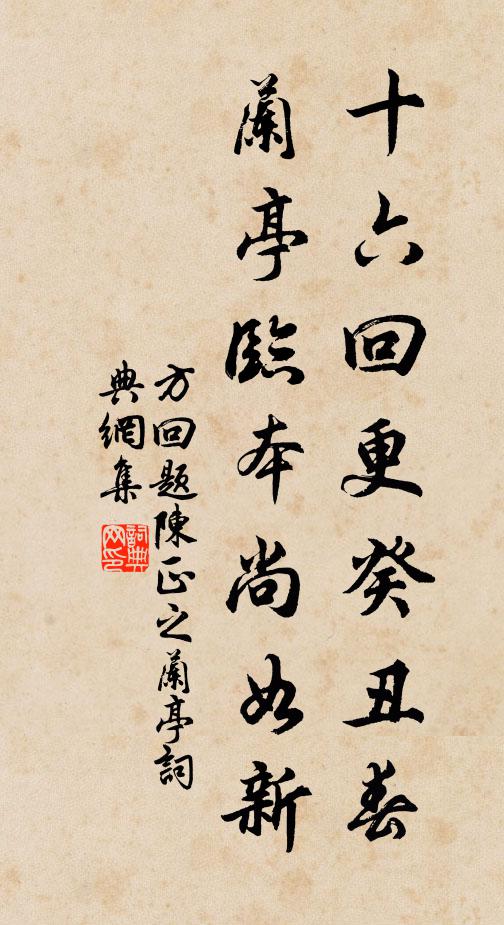 十六回更癸丑春
蘭亭臨本尚如新
方回題陳正之蘭亭詞
典網集
詞典网印